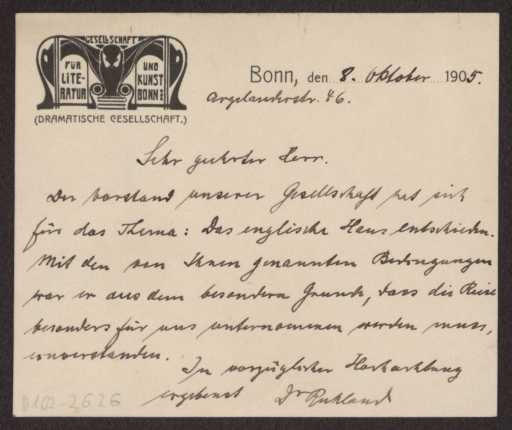 GESELLSCHAFT
FÜR LITE-RATUR
UND KUNST BONN
(DRAMATISCHE GESELLSCHAFT.)
Bonn, den 8. Oktober 1905.
Argelanderstr. 46.
Sehr geehrter Herr.
Der Vorstand unserer Gesellschaft hat sich
für das Thema: Das englische Haus entschieden.
Mit den von Ihnen genannten Bedingungen
war er aus dem besondern Grunde, dass die Reise
besonders für uns unternommen werden muss,
einverstanden.
In vorzüglicher Hochachtung
ergebenst Dr Ruhland
D102-2626